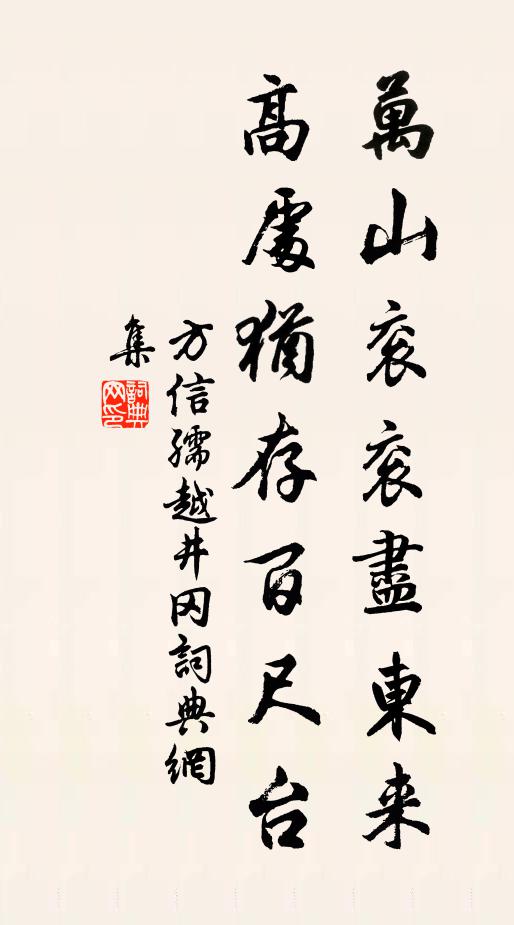 萬山袞袞盡東来
高處猶存百尺台
方信孺越井冈詞典網
集
詞典网印